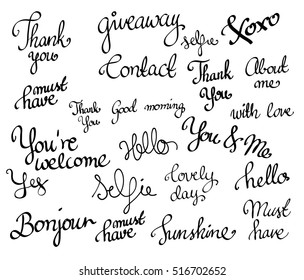 Thank
you
giveaway
selfie
xoxo
Contact
Thank
You
About
me
must
have
Thank
You
Good morning
with love
You're
welcome
Hello
You & Me
Yes
Selfie
lovely
day
hello
Bonjour
must
have
Sunshine
Must
have
shutterstock.com · 516702652